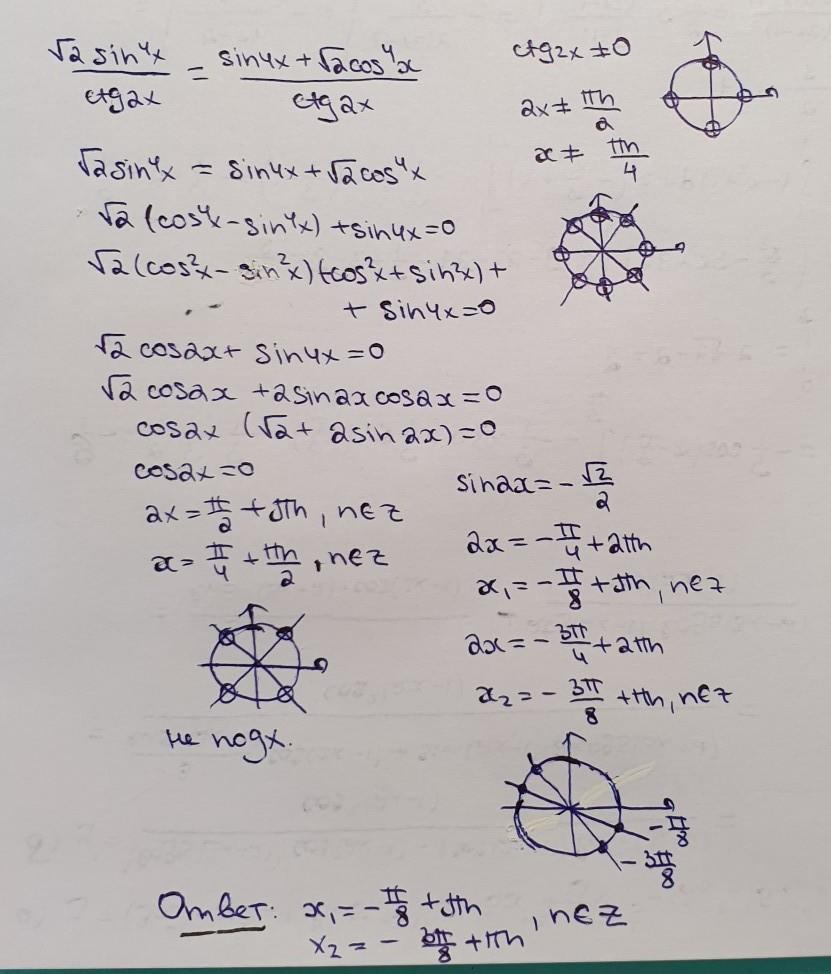 √2 sin⁴x / ctg2x = sin4x + √2cos⁴x / ctg2x
ctg2x ≠ 0
2x ≠ πn/2
x ≠ πn/4
√2sin⁴x = sin4x + √2cos⁴x
√2 (cos⁴x - sin⁴x) + sin4x = 0
√2 (cos²x - sin²x)(cos²x + sin²x) +
+ sin4x = 0
√2 cos2x + sin4x = 0
√2 cos2x + 2sin2xcos2x = 0
cos2x (√2 + 2sin2x) = 0
cos2x = 0
2x = π/2 + πn, n∈z
x = π/4 + πn/2, n∈z
не подх.
sin2x = - √2/2
2x = - π/4 + 2πn
x₁ = - π/8 + πn, n∈z
2x = - 3π/4 + 2πn
x₂ = - 3π/8 + πn, n∈z
- π/8
- 3π/8
Ответ: x₁ = - π/8 + πn
x₂ = - 3π/8 + πn , n∈Z